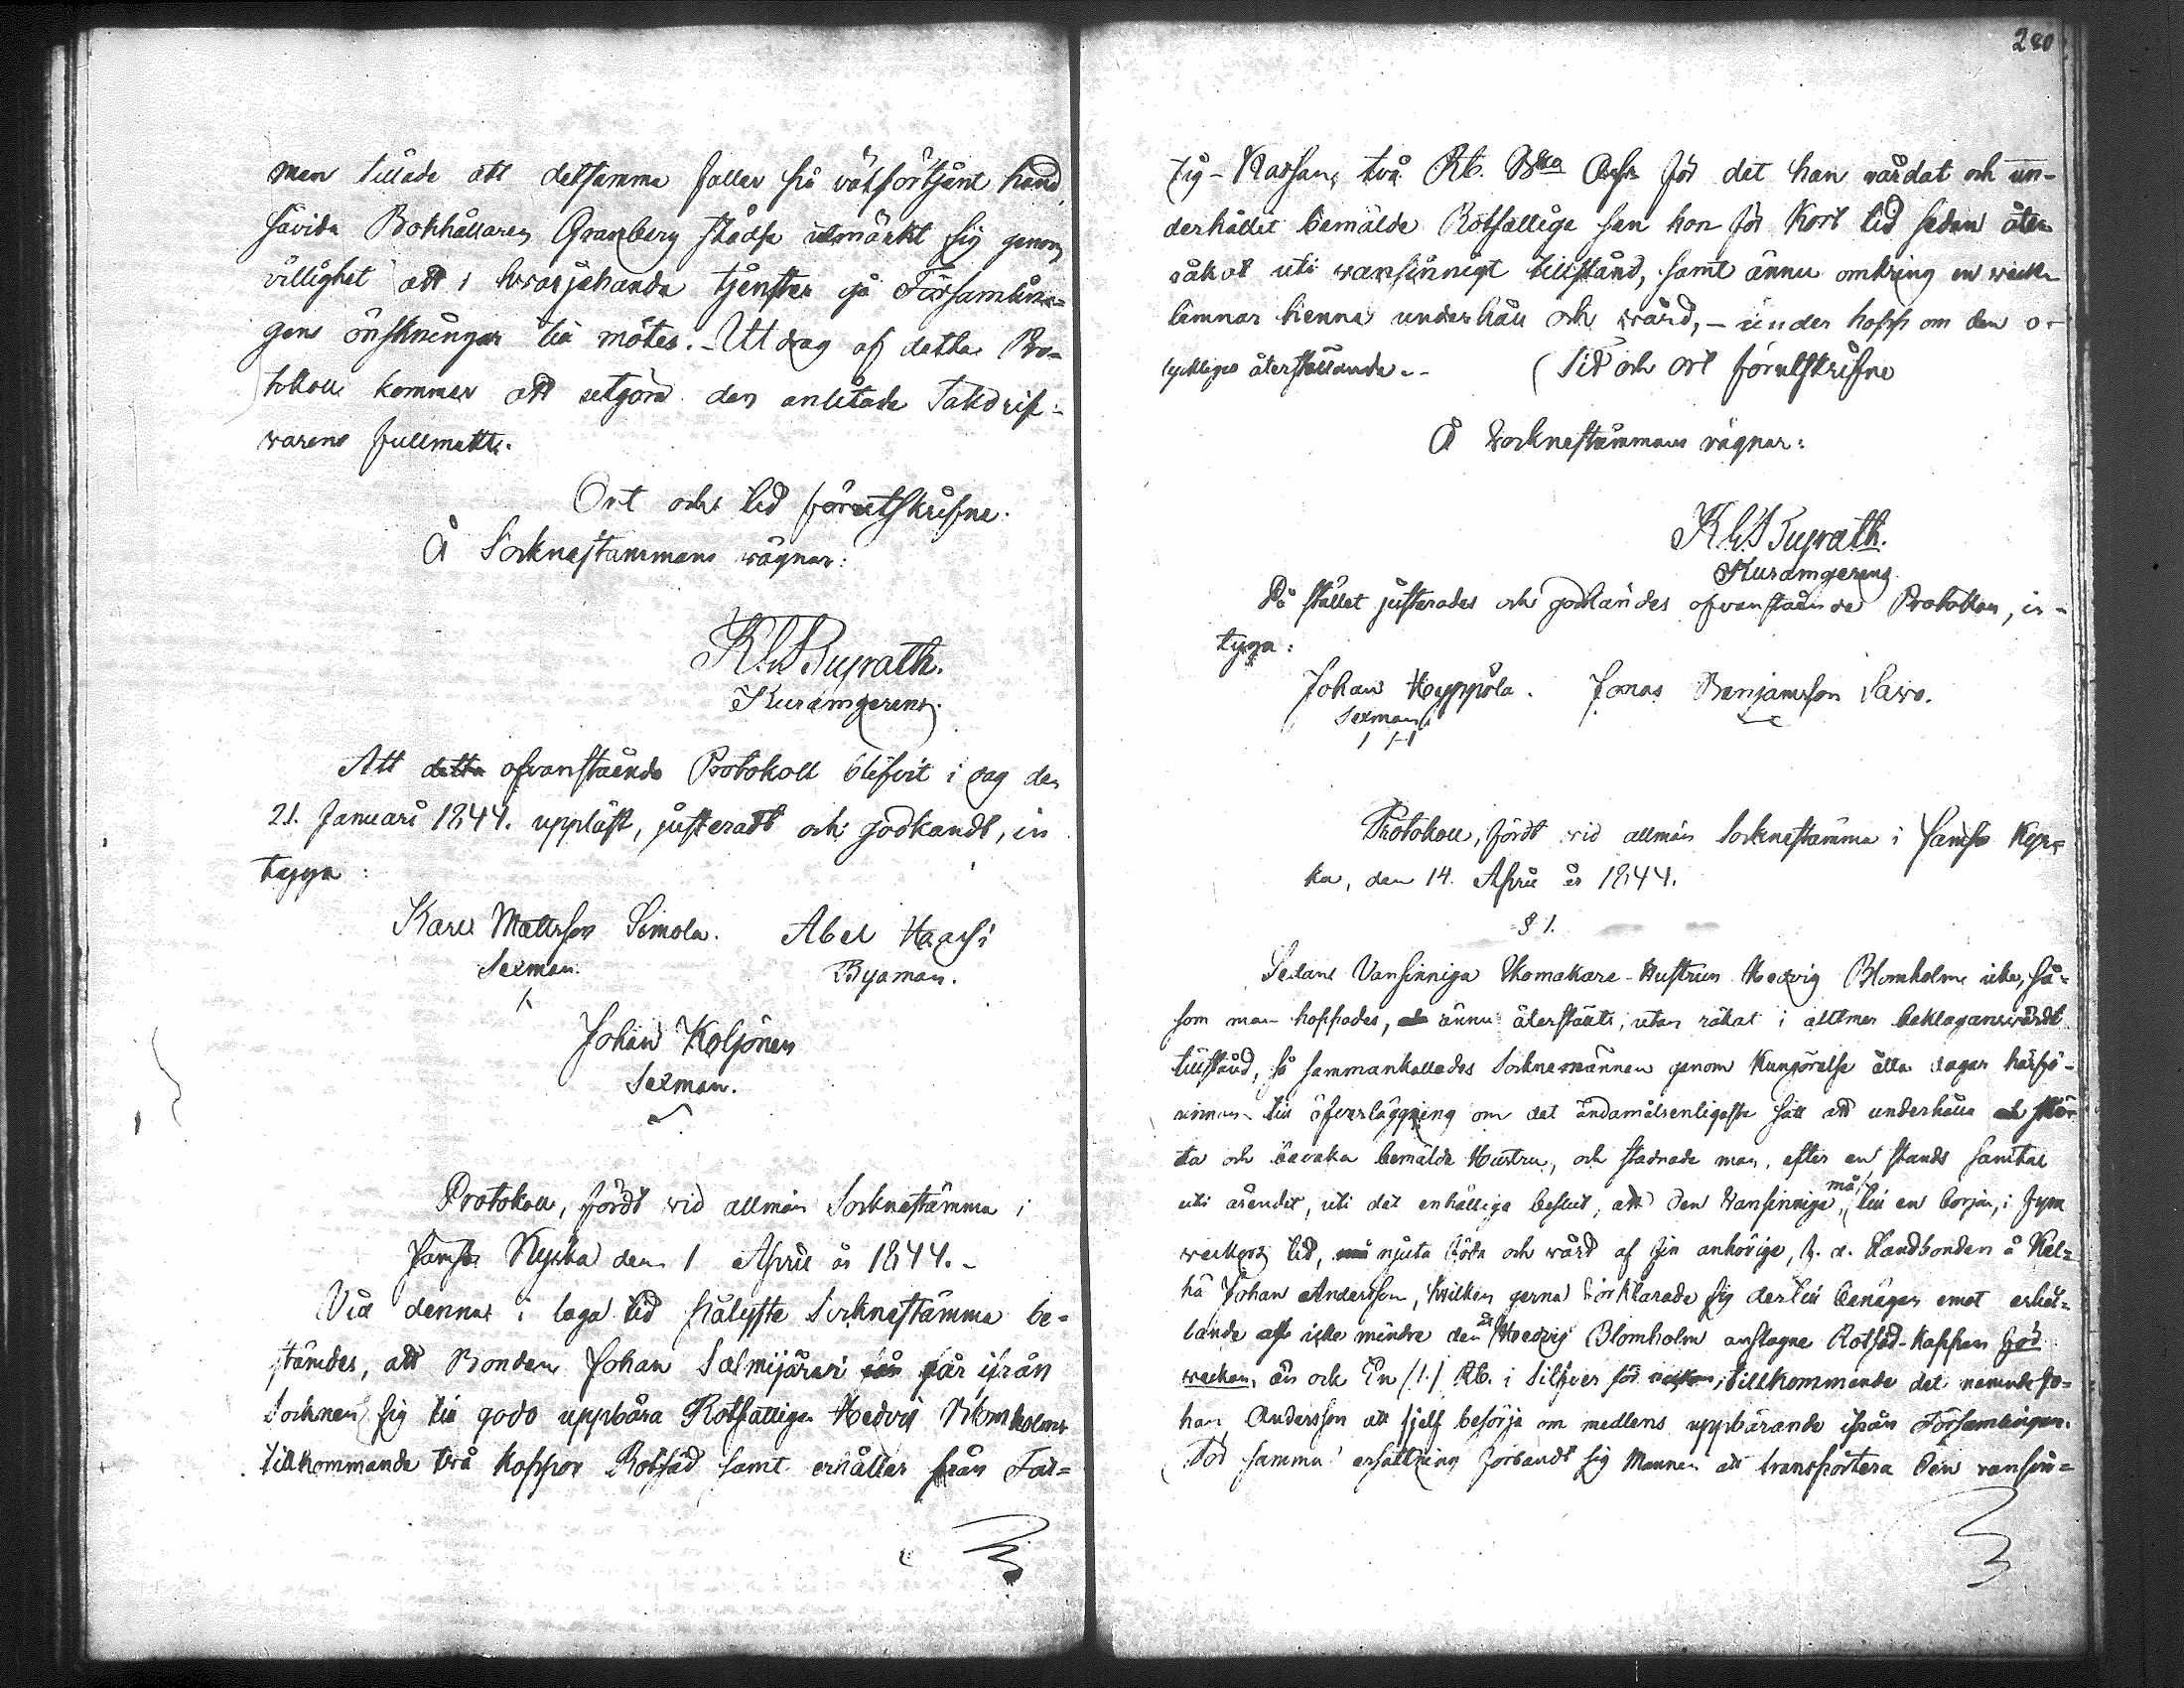 men tillade att detsamma faller på välförtjent hand,
såvida Bokhållaren Granberg städse utmärkt sig genom
villighet att i hvarjehanda tjenster gå Församlin-
gens önskningar till mötes. - Utdrag af detta Pro-
tokoll kommer att utgöra den antagne Takdrif-
varens fullmakt.
Ort och tid förutskrifne.
Å Sockenstämmans vägnar:
Kuramgerens.
Att detta ofvanstående Protokoll blifvit i dag den
21. Januari 1844. uppläst, justeradt och godkändt, in
tyga:
Karl Mattsson Simola. Abel Haassi
Sexman. Byaman.
Johan Koljonen
Sexman.
Protokoll, fördt vid allmän Socknestämma i
Jämsä Kyrka den 1 April år 1844. -
Vid denna i laga tid pålyste Socknestämma be-
stämdes, att Bonden Johan Salmijärvi får ifrån
Socknen sig till godo uppbära Rotfattigen Hedvig Blomholms
tillkommande två kappor Rotsäd samt erhåller från Fat-
280
tig-Kassan två Rb. B:co Ass. för det han vårdat och un-
derhållit bemälde Rotfattige sen hon för kort tid sedan åter
råkat uti vansinnigt tillstånd, samt ännu omkring en vecka
lemnar henne underhåll och vård, - under hopp om den o-
lyckliges återställande. - Tid och ort förutskrifne
Å Socknestämmans vägnar:
Kuramgerens
På stället justerades och godkändes ofvanstående Protokoll, in-
tyga:
Johan Hyppölä. Jonas Benjamsson Savo.
Sexman
Protokoll, fördt vid allmän Socknestämma i Jämsä Kyr-
ka, den 14. April år 1844.
§ 1.
Sedan Vansinniga Skomakare-Hustrun Hedvig Blomholm icke, så-
som man hoppades, ännu återställts, utan råkat i alltmer beklagansvärdt
tillstånd, så sammankallades Socknemännen genom Kungörelse åtta dagar härför-
innan till öfverläggning om det ändamålsenligaste sätt att underhålla skö-
ta och bevaka bemälda Hustru, och stadnade man, efter en stunds samtal
uti ärendet, uti det enhälliga beslut, att den Vansinniga må, till en början, i fyra
veckors tid, må njuta föda och vård af sin anhörige, Landbonden å
Johan Andersson, hvilken gerna förklarade sig dertill benägen emot erhål-
lande af icke mindre den åt Hedvig Blomholm anslagne Rotsäd-kappen för
veckan, än ock En /1./ Rb. i Silfver för veckan, tillkommande det nämnde Jo-
han Andersson att sjelf besörja om medlens uppbärande ifrån Församlingen.
För samma ersättning förband sig Mannen att transportera den vansin-